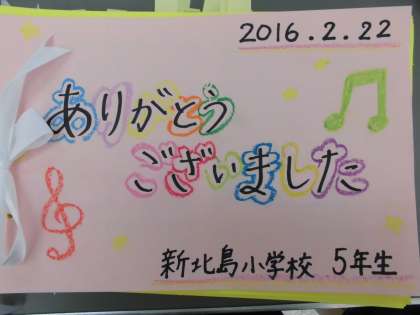 2016.2.22
ありがとう
ございました
新北島小学校 5年生